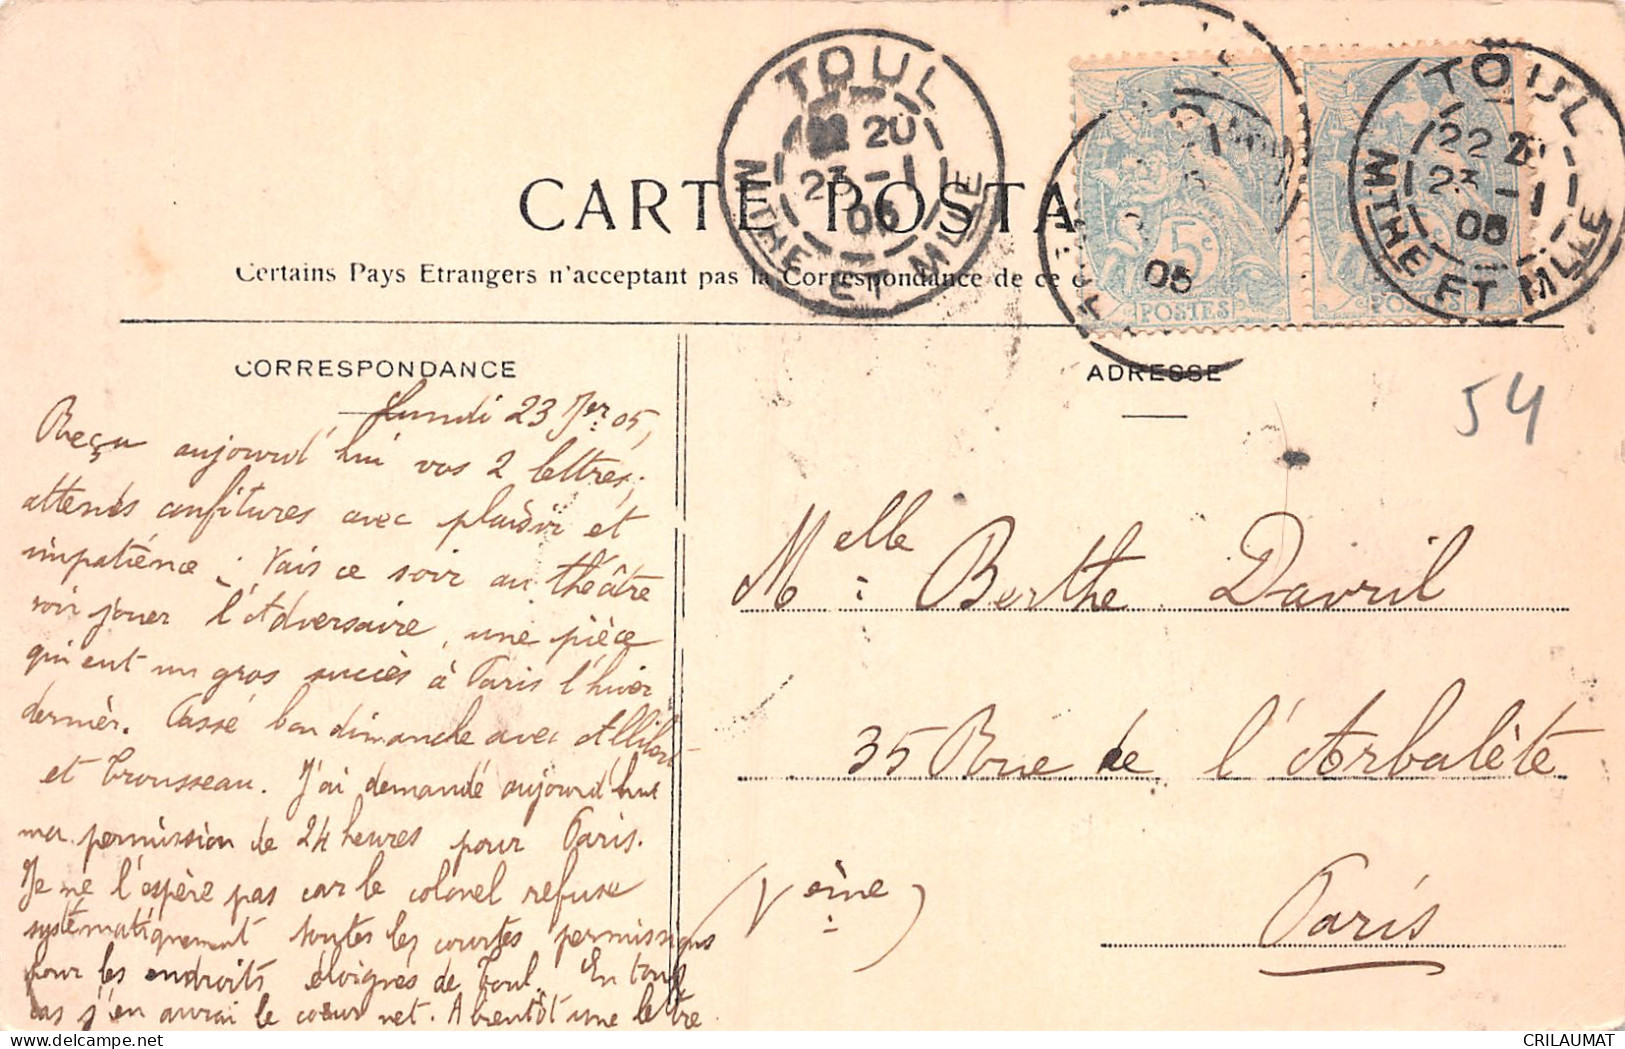 CARTE POSTA
Certains Pays Etrangers n'acceptant pas la Correspondance de ce
TOUL
20
23-1
05
MTHE ET MLLE
05
5c
POSTES
POSTES
TOUL
22
23-1
05
MTHE ET MLLE
CORRESPONDANCE
ADRESSE
54
Lundi 23 Jer 05,
Reçu aujourd'hui vos 2 lettres;
attends confitures avec plaisir et
impatience; Vais ce soir au théâtre
voir jouer l'Adversaire, une pièce
qui eut un gros succès à Paris l'hiver
dernier. Passé bon dimanche avec Allibert
et Trousseau. J'ai demandé aujourd'hui
ma permission de 24 heures pour Paris.
Je ne l'espère pas car le colonel refuse
systématiquement toutes les courtes permissions
pour les endroits éloignés de Toul. En tout
cas j'en aurai le cœur net. A bientôt une lettre
Melle Berthe Davril
35 Rue de l'Arbalète
(Vème) Paris
CRILAUMAT